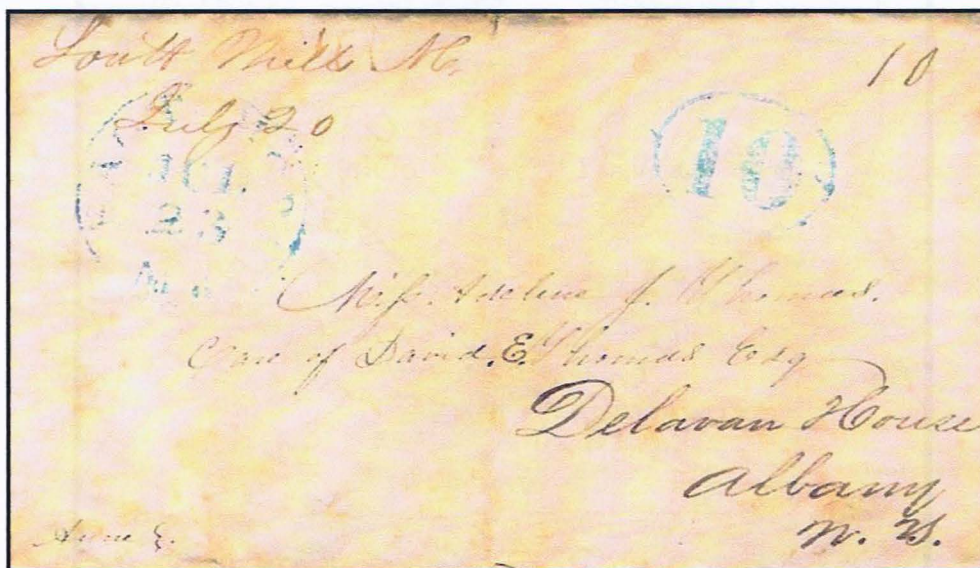 10
July 20
10
JUL
23
Miss. Adeline J. Thomas.
Care of David. E. Thomas Esq
Delavan House
Albany
N. Y.